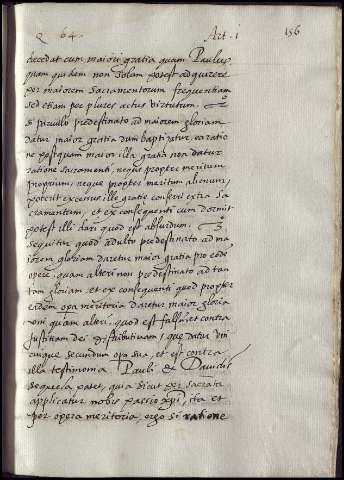 Q 64. Art. 1 156
decedat cum maiori gratia quam Paulus,
quam quidem non solum potest adquirere
per maiorem sacramentorum frequentiam
sed etiam per plures actus virtutum. 2º
si parvulo predestinato ad maiorem gloriam
datur maior gratia dum baptizatur, ratio
ne postquam maior illa gratia non datur
ratione sacramenti, neque propter meritum
proprium, neque propter meritum alienum,
poterit excessus ille gratie conferri extra sa
cramentum, et ex consequenti cum dormit
potest illi dari quod est absurdum. 3º
sequitur quod adulto predestinato ad ma
iorem gloriam daretur maior gratia pro eode
opere, quam alteri non predestinato ad tan
tam gloriam, et ex consequenti quod propter
eadem opa meritoria daretur maior gloria
uni quam alteri, quod est falsum et contra
justitiam dei distributivam, que datur uni
cuique secundum opa sua, et est contra
illa testimonia Pauli & Davidis
sequela patet, quia sicut per sacrata
applicatur nobis passio xpi, ita et
per opera meritoria, ergo si ratione